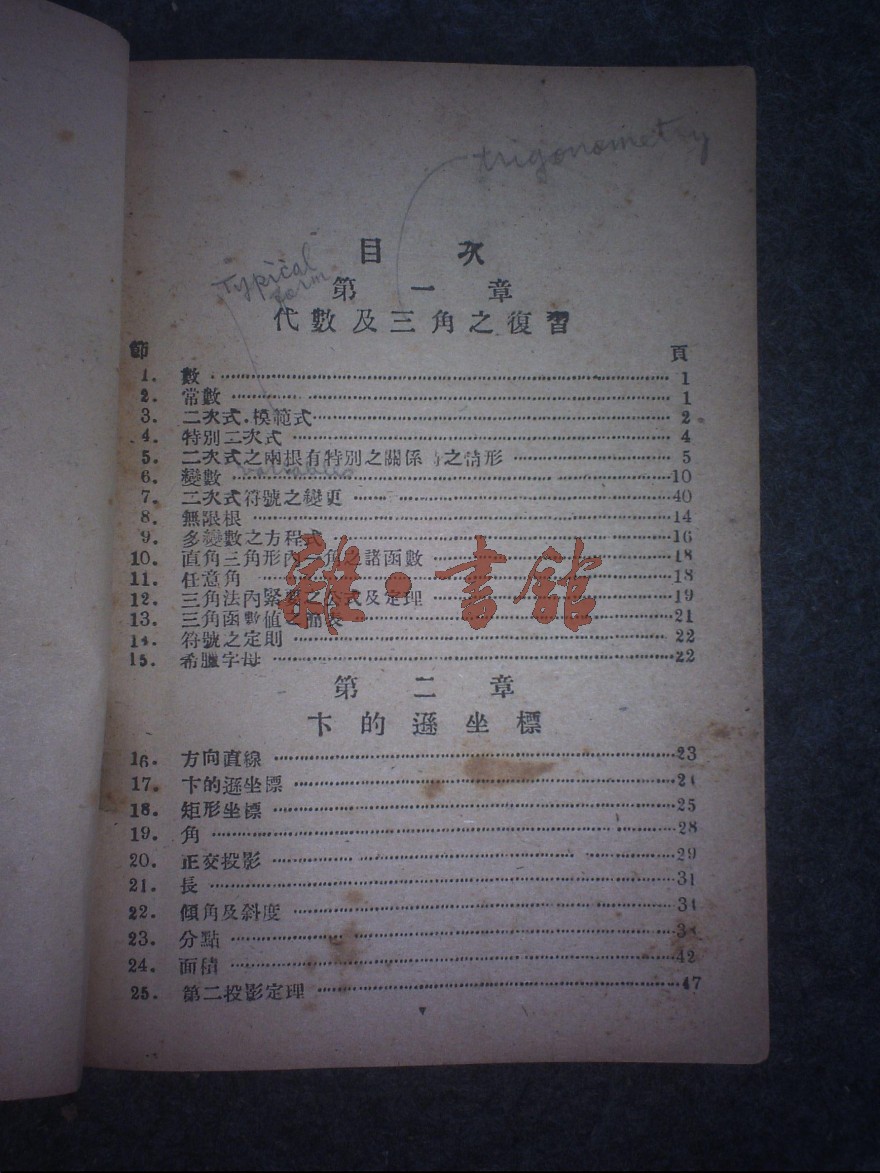 trigonometry
目次
typical
form
第一章
代數及三角之復習
節 頁
1. 數 1
2. 常數 1
3. 二次式.模範式 2
4. 特別二次式 4
5. 二次式之兩根有特別之關係 之情形 5
variables
6. 變數 10
7. 二次式符號之變更 40
8. 無限根 14
9. 多變數之方程式 16
10. 直角三角形內一角之諸函數 18
11. 任意角 18
12. 三角法內緊要之公式及定理 19
13. 三角函數值之 表 21
14. 符號之定則 22
15. 希臘字母 22
雜·書館
第二章
卞的遜坐標
16. 方向直線 23
17. 卞的遜坐標 24
18. 矩形坐標 25
19. 角 28
20. 正交投影 29
21. 長 31
22. 傾角及斜度 34
23. 分點
24. 面積 42
25. 第二投影定理 47